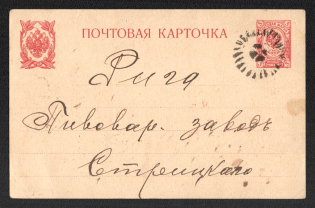 ПОЧТОВАЯ КАРТОЧКА
Рига
Пивовар. заводъ
Стрицкаго